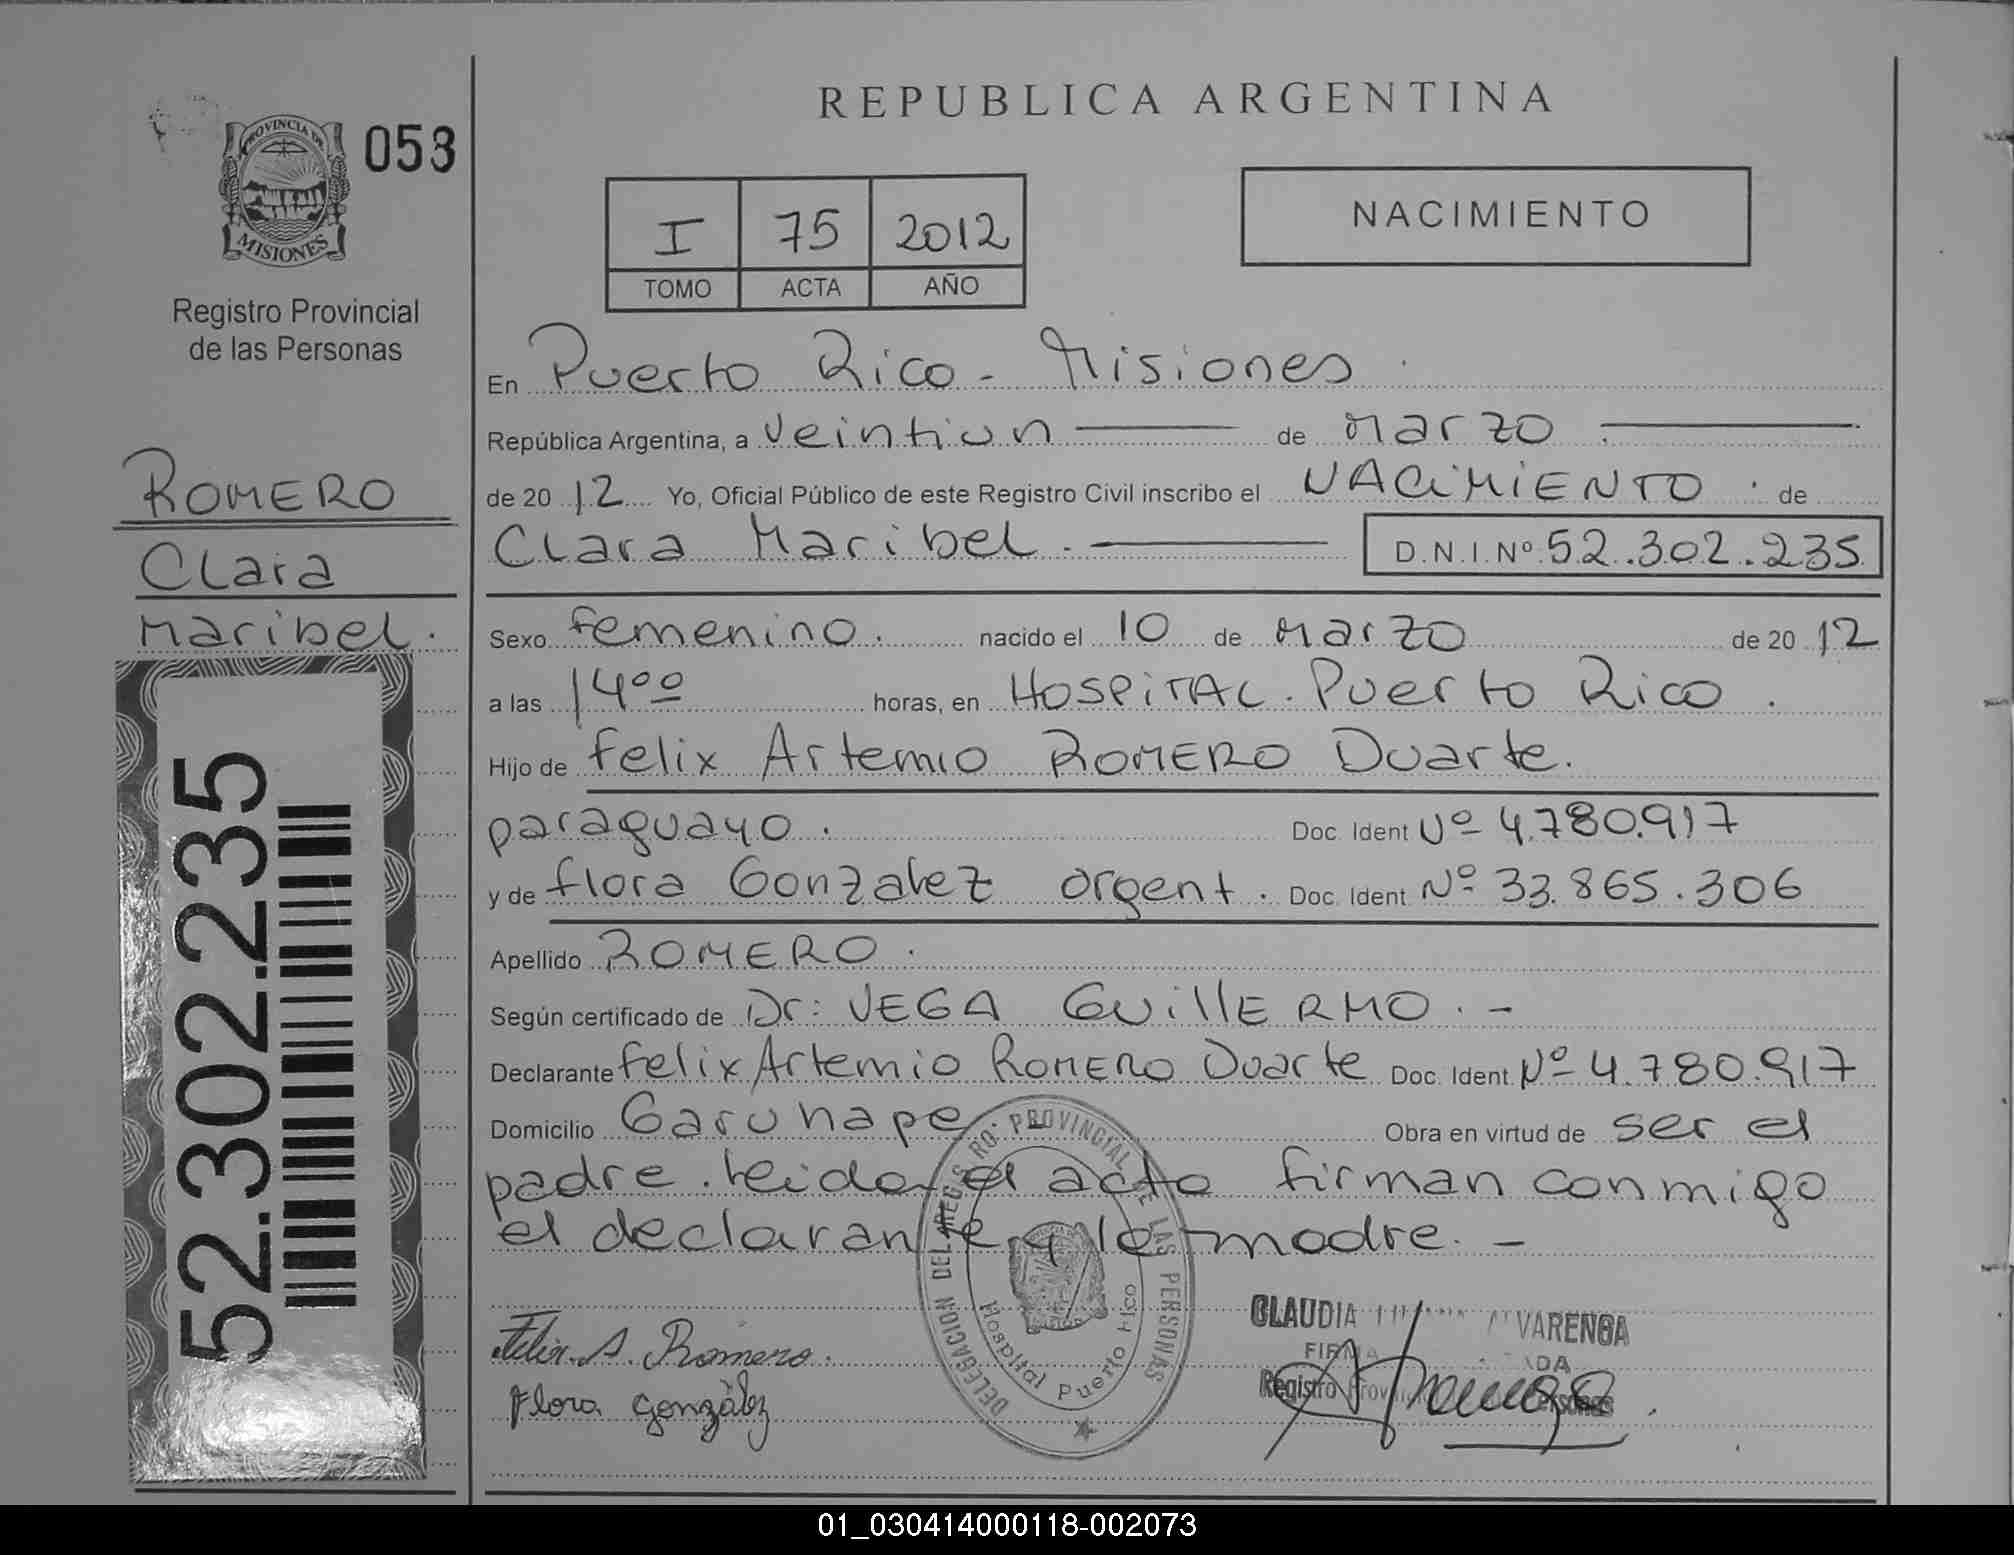 REPUBLICA ARGENTINA
PROVINCIA DE
MISIONES
053
Registro Provincial
de las Personas
I 75 2012
TOMO ACTA AÑO
NACIMIENTO
ROMERO
Clara
Maribel.
52.302.235
En Puerto Rico - Misiones.
República Argentina, a veintiun de Marzo
de 20 12 Yo, Oficial Público de este Registro Civil inscribo el NACIMIENTO . de
Clara Maribel. D.N.I.Nº 52.302.235
Sexo femenino. nacido el 10 de Marzo de 20 12
a las 14⁰⁰ horas, en HOSPITAL. Puerto Rico.
Hijo de Felix Artemio ROMERO Duarte.
paraguayo. Doc. Ident Nº 4.780.917
y de flora Gonzalez argent. Doc. Ident Nº 33.865.306
Apellido ROMERO.
Según certificado de Dr: VEGA GUILLERMO. -
Declarante Felix Artemio ROMERO Duarte Doc. Ident. Nº 4.780.917
Domicilio Garuhape Obra en virtud de ser el
padre. leida el acta firman conmigo
el declarante y la madre. -
DELEGACION DEL REG. PROVINCIAL DE LAS PERSONAS
Hospital Puerto Rico
Felix A. Romero.
Flora González
CLAUDIA ALVARENGA
Registro
01_030414000118-002073